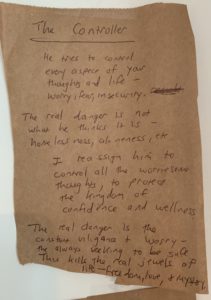 The Controller
He tries to control
every aspect of your
thoughts and life -
worry, fear, insecurity.
The real danger is not
what he thinks it is -
homelessness, aloneness, etc
I reassign him to
control all the worrisome
thoughts, to protect
the kingdom of
confidence and wellness
The real danger is the
constant vilgance & worry -
the always checking to be safe
This kills the real jewels of
life - freedom, love, & mystery